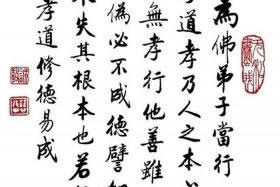 為佛弟子當行
孝道孝乃人之本
無孝行他善雖
偽必不成德譬
失其根本也若
孝道修德易成